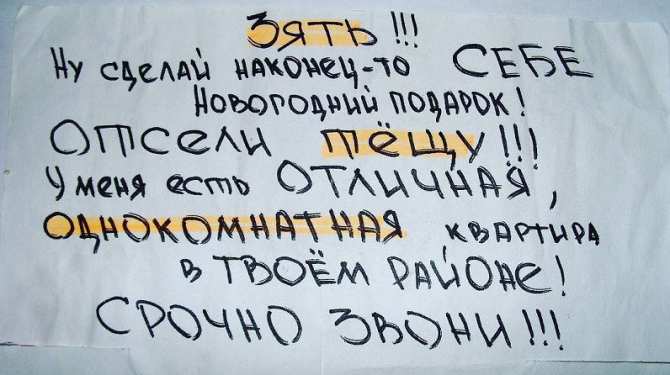 Зять!!!
Ну сделай наконец-то СЕБЕ
Новогодний подарок!
Отсели тёщу!!!
У меня есть ОТЛИЧНАЯ,
ОДНОКОМНАТНАЯ квартира
в ТВОЁМ РАЙОНе!
СРОЧНО ЗВОНИ!!!